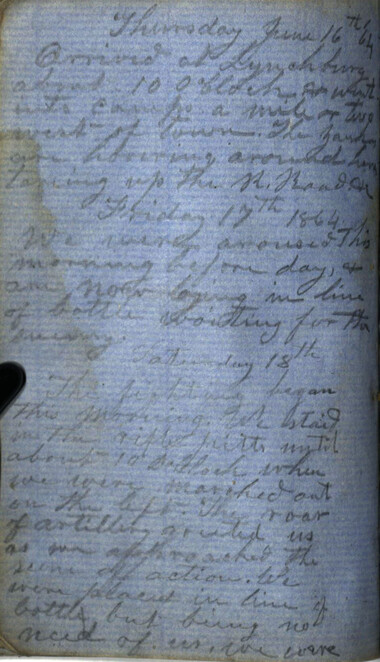 Thursday June 16th/64
Arrived at Lynchburg
about 10 O'clock, & went
into camp a mile or two
west of town. The Yankees
are hovering around here
taring up the R. Road &c
Friday 17th 1864.
We were aroused this
morning before day, &
are now laying in line
of battle waiting for the
enemy.
Saturday 18th
The fighting began
this morning. We staid
in the rifle pitts until
about 10 O'clock when
we were marched out
on the left. The roar
of artillery greeted us
as we approached the
scene of action. We
were placed in line of
battle, but being no
need of us, we were